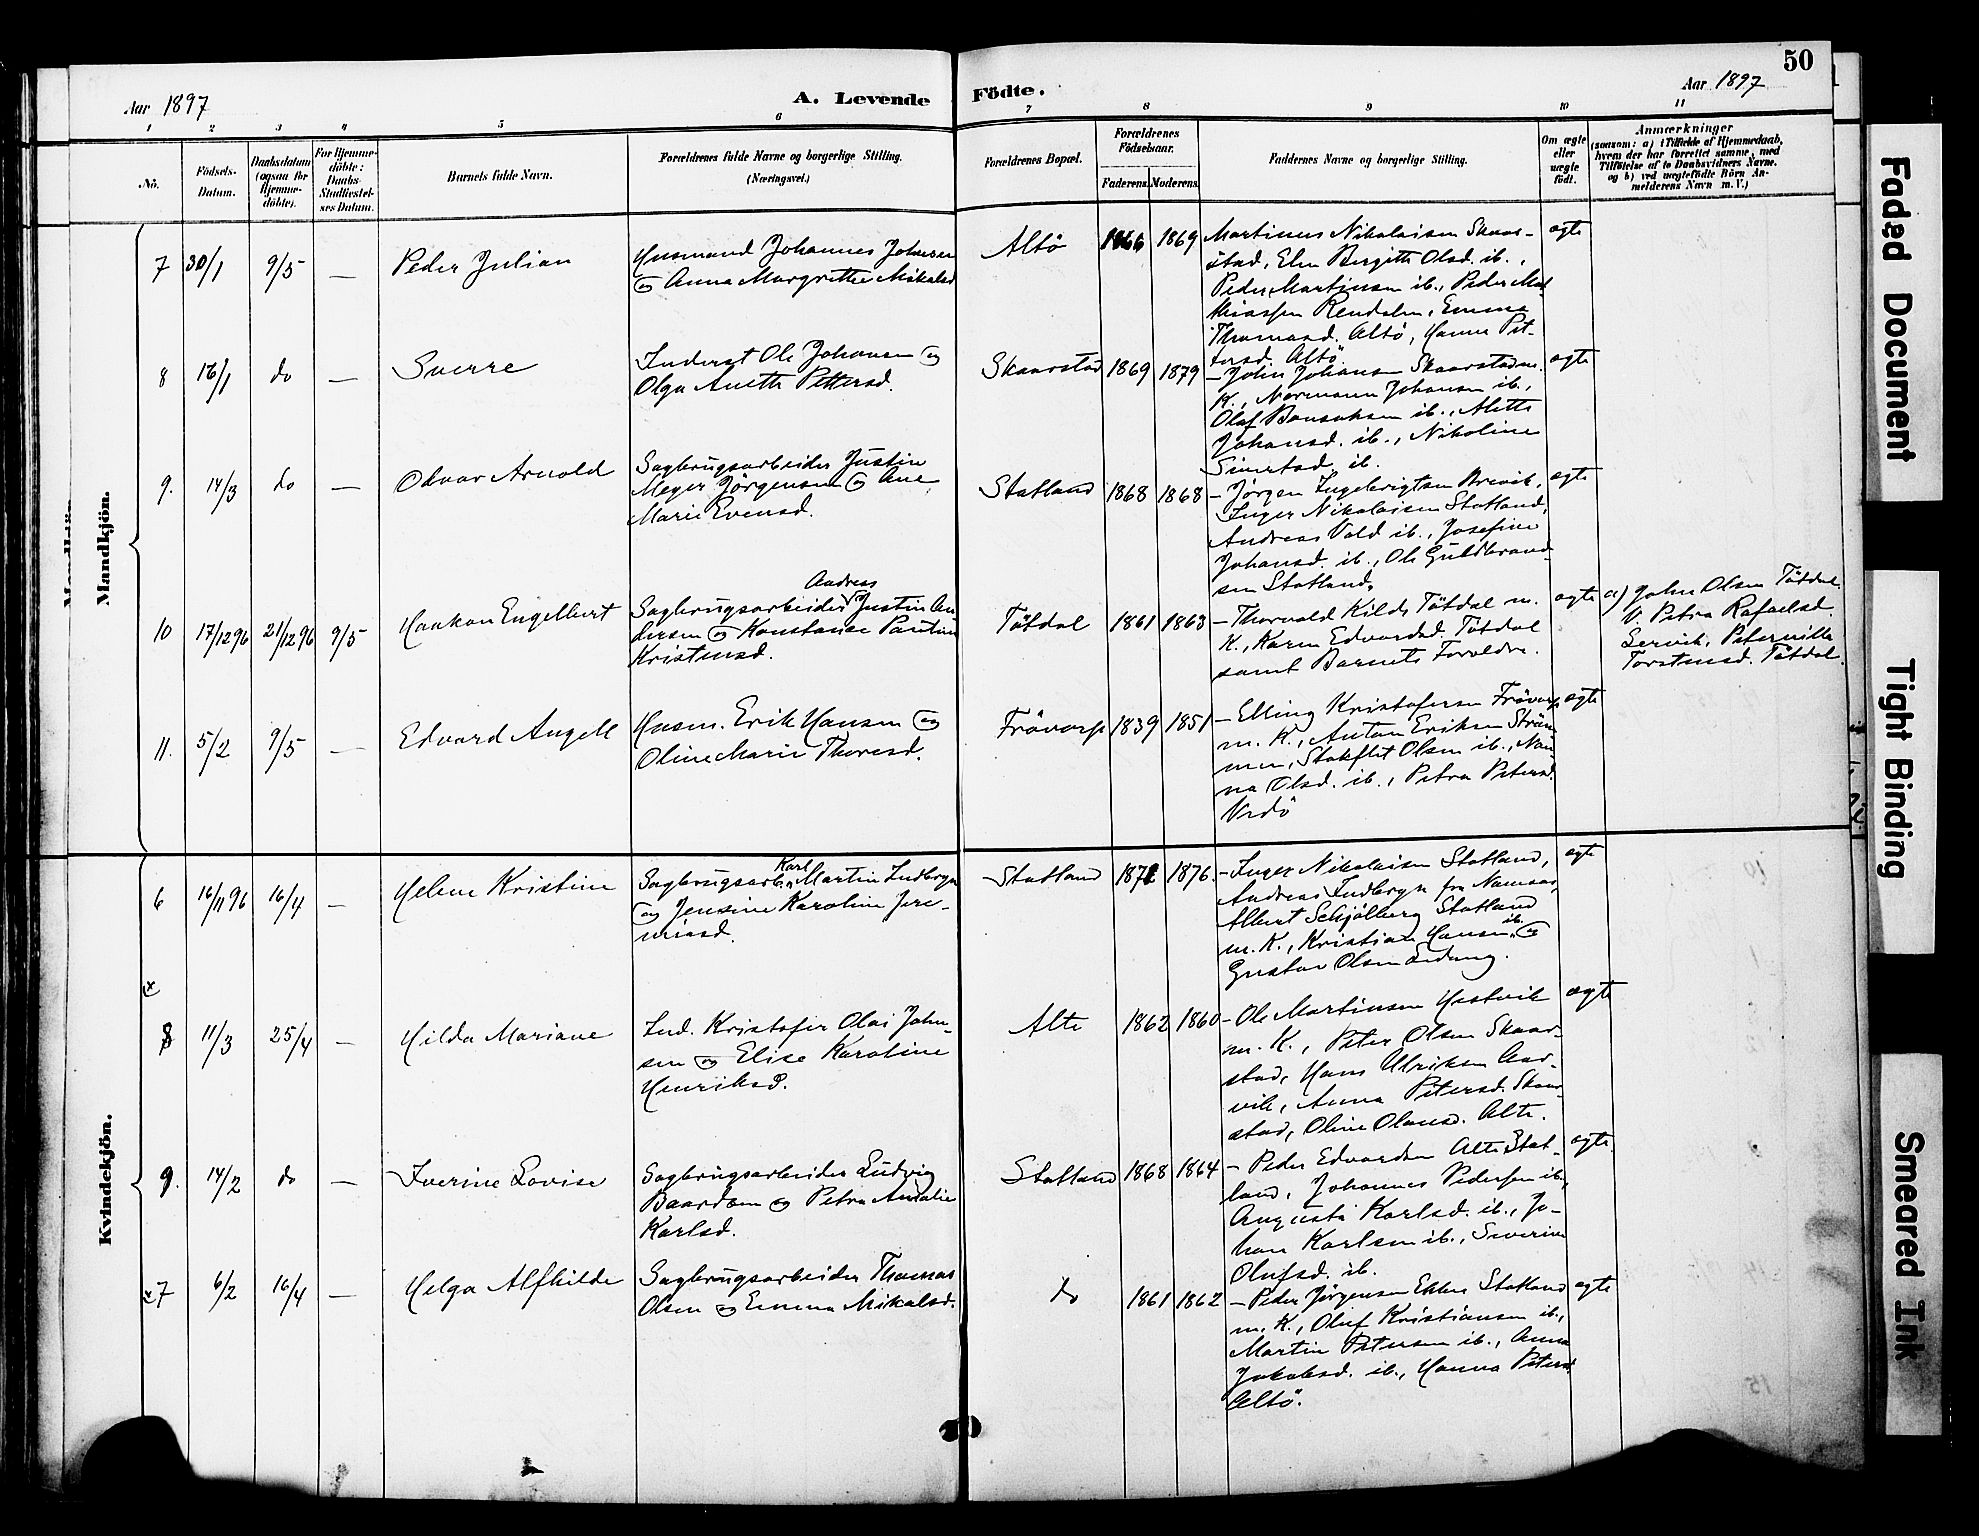 50
Aar 1897
A. Levende Födte.
Aar 1897
1 2 3 4 5 6 7 8 9 10 11
No.
Födsels-
Datum.
Daabsdatum
(ogsaa for
Hjemme-
döbte).
For Hjemme-
döbte:
Daabs-
Stadfæstel-
ses Datum.
Barnets fulde Navn.
Forældrenes fulde Navne og borgerlige Stilling.
(Næringsvei.)
Forældrenes Bopæl.
Forældrenes
Födselsaar.
Faderens. Moderens.
Faddernes Navne og borgerlige Stilling.
Om ægte
eller
uægte
födt.
Anmærkninger
(saasom: a) i Tilfælde af Hjemmedaab,
hvem der har forrettet samme, med
Tilföielse af to Daabsvidners Navne.
og b) ved uægtefödte Börn An-
melderens Navn m. V.)
Mandkjön.
7 30/1 9/5 — Peder Julian
Husmand Johannes Johnsen
og Anna Margrethe Mikalsd
Altö 1866 1869
Martinus Nikolaisen Skaar-
stad, Elen Birgitte Olsd. ib.,
Peder Martinsen ib., Peder Mat
thiassen Rendalen, Emma
Thomasd. Altö, Hanna Pet-
tersd. Altö.
ægte
8 16/1 do — Sverre
Inderst Ole Johansen og
Olga Anette Pettersd.
Skaarstad 1869 1879
— John Johansen Skaarstad m.
K., Normann Johansen ib.,
Olaf Bonsaksen ib., Alette
Johansd. ib., Nikoline
Sivertsd. ib.
ægte
9. 14/3 do — Odvar Arnold
Sagbrugsarbeider Justin
Meyer Jörgensen og Ane
Marie Evensd.
Statland 1868 1868
— Jörgen Ingebrigtsen Brevik,
Inger Nikolaisen Statland,
Andreas Vold ib., Josefine
Johansd. ib., Ole Guldbrand-
sen Statland.
ægte
10 17/12 96 21/12 96 9/5 Haakon Engelbert
Andreas
Sagbrugsarbeider Justin An
dersen og Konstance Pauline
Kristensd.
Tötdal 1861 1863
— Thorvald Kilds Tötdal m.
K., Karen Edvardsd. Tötdal
samt Barnets Foreldre.
ægte
a) John Olsen Tötdal.
V. Petra Rafaelsd.
Servik, Peternille
Torstensd. Tötdal.
11. 5/2 9/5 — Edvard Angell
Husm. Erik Hansen og
Oline Marie Thoresd.
Frövarp 1839 1851
— Elling Kristofersen Frövarp
m. K., Anton Eriksen Ström
men, Stokflet Olsen ib., Nan
na Olsd. ib., Petra Petersd.
Vedö
ægte
Kvindekjön.
6 16/11 96 16/4 — Helene Kristine
Karl
Sagbrugsarb. Martin Indbryn
og Jensine Karoline Jere-
miasd.
Statland 1872 1876.
— Inger Nikolaisen Statland,
Andreas Indbryn fra Namsos,
Albert Schjölberg Statland
m. K., Kristian Hansen ib. og
Gustav Olsen Sedang.
ægte
x
8 11/3 25/4 — Hilda Mariane
Ind. Kristofer Olai John-
sen og Elise Karoline
Henriksd.
Alte 1862 1860
— Ole Martinsen Hestvik
m. K., Peter Olsen Skaar-
stad, Hans Ulriksen Aar-
vik, Anna Petersd. Skaar
stad, Oline Olausd. Alte.
ægte
9. 14/2 do — Iverine Lovise
Sagbrugsarbeider Ludvig
Baardsen og Petra Amalie
Karlsd.
Statland 1868 1864
— Peder Edvardsen Alte Stat-
land, Johannes Pedersen ib.,
Augusta Karlsd. ib., Jo-
han Karlsen ib., Severine
Olufsd. ib.
ægte
x 7 6/2 16/4 — Helga Alfhilde
Sagbrugsarbeider Thomas
Olsen og Emma Mikalsd.
do 1861 1862
— Peder Jörgensen Ekker Statland
m. K., Oluf Kristiansen ib.,
Martin Petersen ib., Anna
Jakobsd. ib., Hanna Petersd
Altö.
ægte
Faded Document
Tight Binding
Smeared Ink